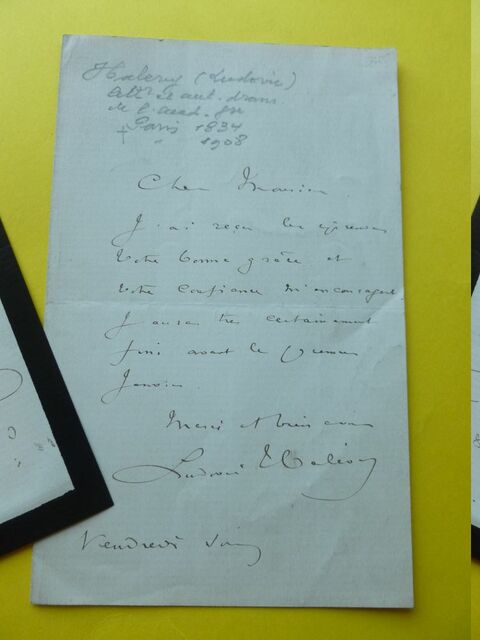 Halévy (Ludovic)
Littr et aut. dram
de l'acad. fse
Paris 1834
† " 1908
Cher Monsieur
J'ai reçu les épreuves
Votre bonne grâce et
votre confiance m'encouragent
J'aurai très certainement
fini avant le premier
Janvier.
Merci et bien à vous
Ludovic Halévy
Vendredi soir